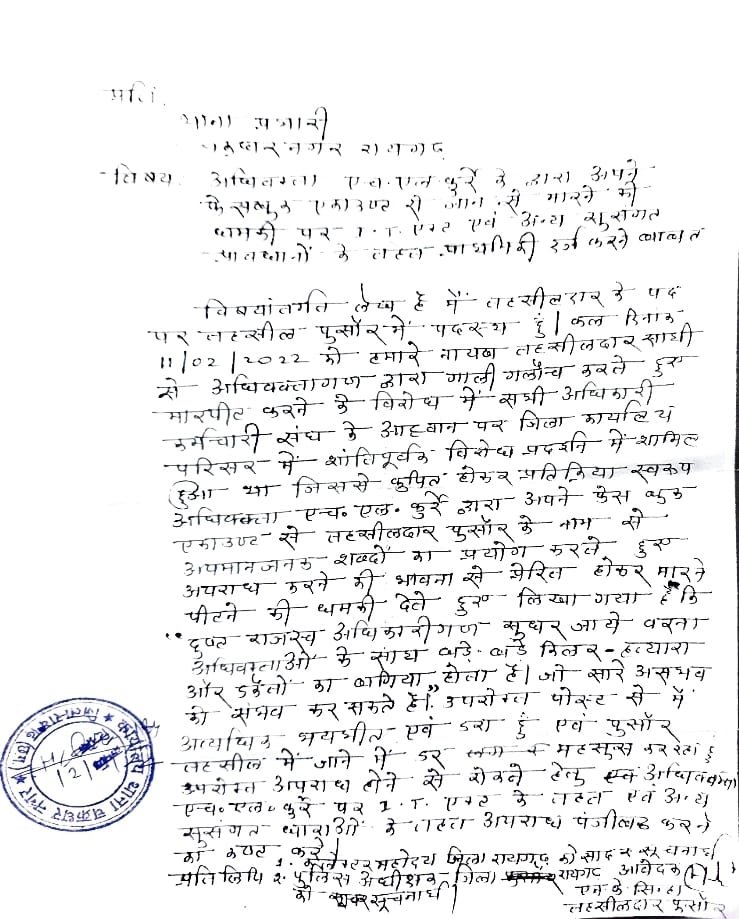 प्रति,
थाना प्रभारी
चक्रधरनगर रायगढ़
विषय. अधिवक्ता एच.एल.कुर्रे के द्वारा अपने
फेसबुक एकाउण्ट से जान से मारने की
धमकी पर I.T. एक्ट एवं अन्य सुसंगत
प्रावधानों के तहत प्राथमिकी दर्ज करने बाबत
विषयांतर्गत लेख है मैं तहसीलदार के पद
पर तहसील पुसौर में पदस्थ हुं। कल दिनांक
11/02/2022 को हमारे नायब तहसीलदार साथी
से अधिवक्तागण द्वारा गाली गलौच करते हुए
मारपीट करने के विरोध में सभी अधिकारी
कर्मचारी संघ के आहवान पर जिला कार्यालय
परिसर में शांतिपूर्वक विरोध प्रदर्शन में शामिल
हुआ था जिससे कुपित होकर प्रतिक्रिया स्वरूप
अधिवक्ता एच. एल. कुर्रे द्वारा अपने फेस बुक
एकाउण्ट से तहसीलदार पुसौर के नाम से
अपमानजनक शब्दों का प्रयोग करते हुए
अपराध करने की भावना से प्रेरित होकर मारने
पीटने की धमकी देते हुए लिखा गया है कि
"दुष्ट राजस्व अधिकारीगण सुधर जाये वरना
अधिवक्ताओं के साथ बड़े-बड़े किलर-हत्यारा
और डकैतों का बागिया होता है। जो सारे असंभव
को संभव कर सकते है।" उपरोक्त पोस्ट से में
अत्यधिक भयभीत एवं डरा हुं एवं पुसौर
तहसील में जाने में डर महसुस कर रहा हुं
उपरोक्त अपराध होने से रोकने हेतु एवं अधिवक्ता
एच.एल.कुर्रे पर I.T. एक्ट के तहत एवं अन्य
सुसंगत धाराओं के तहत अपराध पंजीबद्ध करने
का कष्ट करें।
1. कलेक्टर महोदय जिला रायगढ़ को सादर सूचनार्थ
प्रतिलिपि 2. पुलिस अधीक्षक जिला रायगढ़ आवेदक
को सूचनार्थ। एन.के. सिन्हा
तहसीलदार पुसौर
थाना चक्रधर नगर